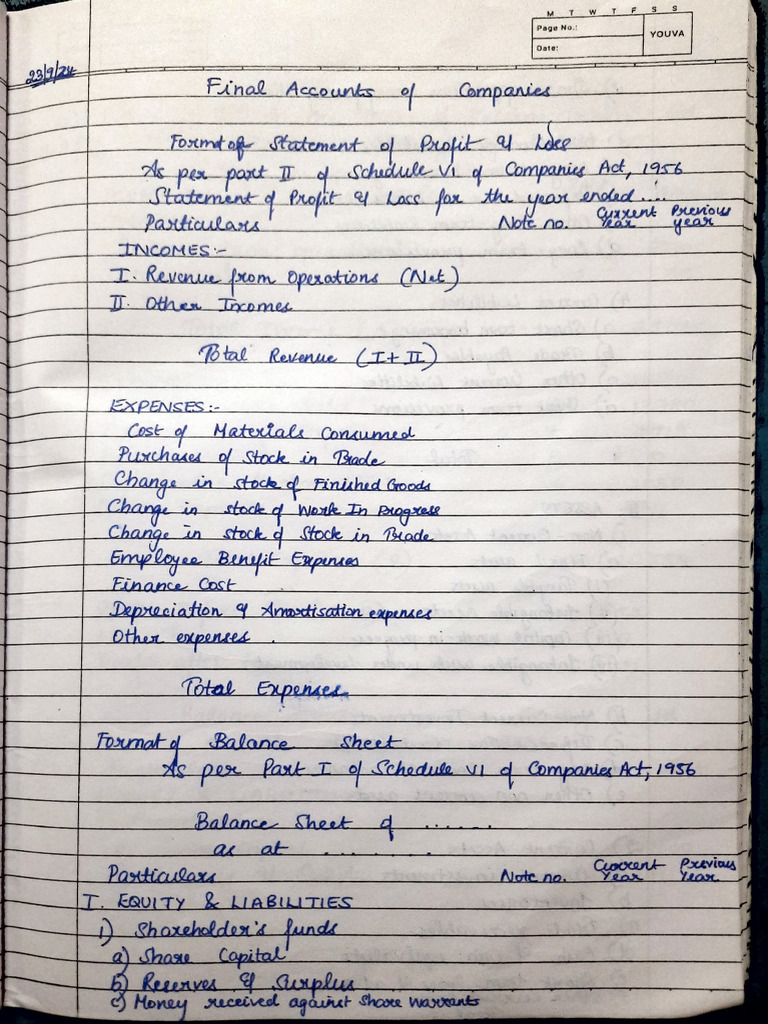 M T W T F S S
Page No.:
YOUVA
Date:
23/9/24
Final Accounts of Companies
Format of Statement of Profit & Loss
As per part II of Schedule VI of Companies Act, 1956
Statement of Profit & Loss for the year ended ....
Particulars Note no. Current Year Previous year
INCOMES:-
I. Revenue from Operations (Net)
II. Other Incomes
Total Revenue (I+II)
EXPENSES:-
Cost of Materials Consumed
Purchases of Stock in Trade
Change in stock of Finished Goods
Change in stock of Work In Progress
Change in stock of Stock in Trade
Employee Benefit Expenses
Finance Cost
Depreciation & Amortisation expenses
Other expenses .
Total Expenses
Format of Balance Sheet
As per Part I of Schedule VI of Companies Act, 1956
Balance Sheet of ......
as at ........
Particulars Note no. Current Year Previous Year
I. EQUITY & LIABILITIES
1) Shareholder's funds
a) Share Capital
b) Reserves & Surplus
c) Money received against Share Warrants